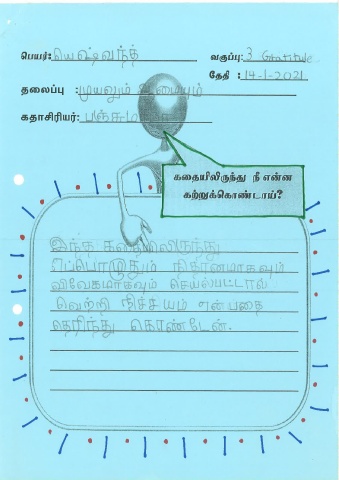 பெயர்: யெஷ்வந்த் வகுப்பு: 3 Gratitude
தேதி : 14-1-2021
தலைப்பு : முயலும் ஆமையும்
கதாசிரியர்:
கதையிலிருந்து நீ என்ன
கற்றுக்கொண்டாய்?
இந்த கதையிலிருந்து
எப்பொழுதும் நிதானமாகவும்
விவேகமாகவும் செயல்பட்டால்
வெற்றி நிச்சயம் என்பதை
தெரிந்து கொண்டேன்.